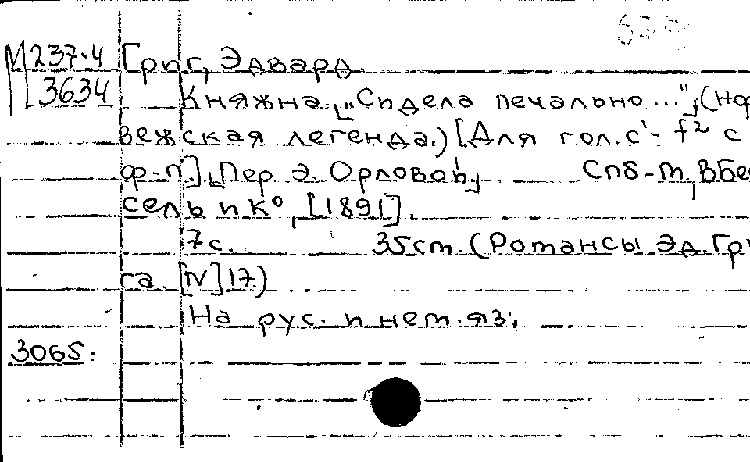 М237-4 Григ, Эдвард
3634 Княжна, „Сидела печально...", (Нор
вежская легенда.) [Для гол. c¹- f² с
ф-п.], Пер. Э. Орловой, Спб-М, В. Бес
сель и К⁰, [1891].
7 с. 35 cm. (Романсы Эд. Гри
га [IV] 17)
На рус. и нем. яз.
3065.